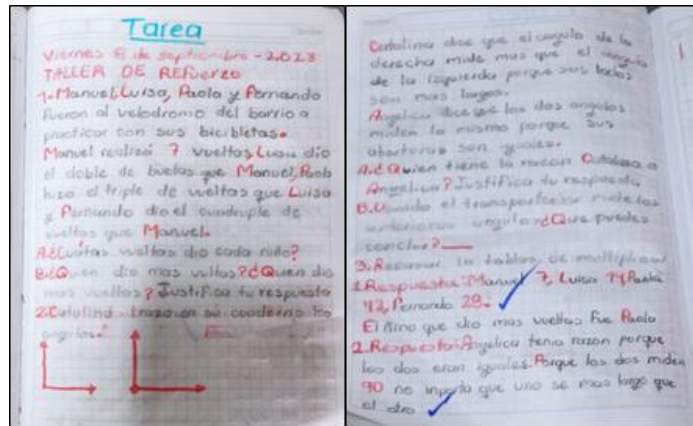 Tarea
Viernes 8 de septiembre - 2023
TALLER DE REFuerzo
1. Manuel, Luisa, Paola y Fernando
fueron al velodromo del barrio a
practicar con sus bicibletas.
Manuel realizó 7 vueltas, Luisa dio
el doble de buetas que Manuel, Paola
hizo el triple de vueltas que Luisa
y Fernando dio el cuadruple de
vueltas que Manuel.
A. ¿Cuátas vueltas dio cada niño?
B. ¿Quien dio mas vultas? ¿Quen dio
mas vueltas? Justifica tu respuesta
2. Catalina trazo en su cuaderno los
angulos.
Catalina dice que el angulo de la
derecha mide mas que el angulo
de la izquierda porque sus lados
son mas largos.
Angelica dice que los dos angulos
miden lo mismo porque sus
aberturas son iguales.
A. ¿Quien tiene la razon Catalina o
Angelica? Justifica tu respuesta
B. Usando el transportador mide los
anteriores angulos ¿Que puedes
concluir?
3. Repasar la tablas de multiplicar
1. Respuesta: Manuel 7, Luisa 14, Paola
42, Fernando 28.
El nino que dio mas vueltas fue Paola
2. Respuesta: Angelica tenia razon porque
los dos eran iguales. Porque los dos miden
90 no importa que uno se mas largo que
el otro